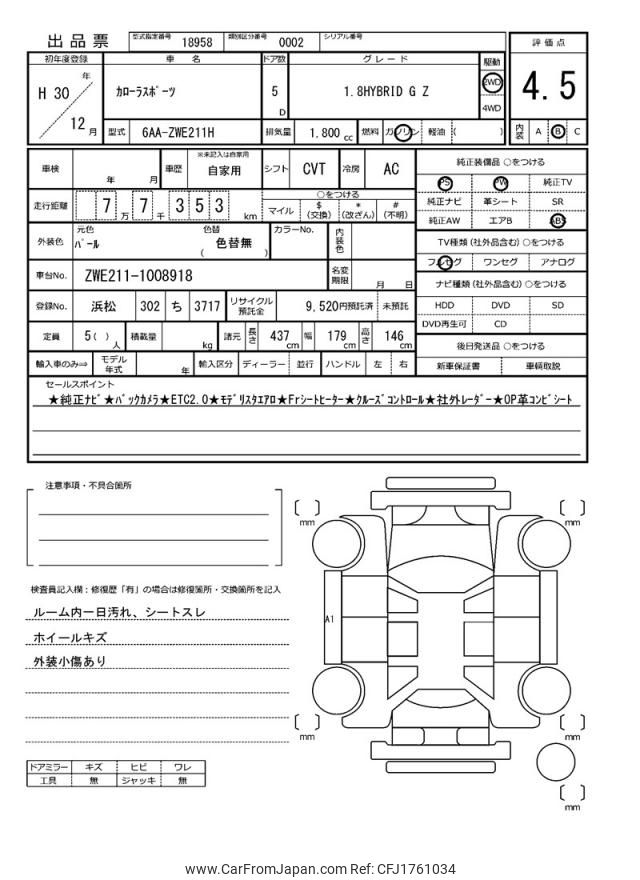 出品票
型式指定番号 18958 類別区分番号 0002 シリアル番号
初年度登録 車 名 ドア数 グレード 駆動
H 30 年 12 月
カローラスポーツ 5 D 1.8HYBRID G Z 2WD 4WD
型式 6AA-ZWE211H 排気量 1,800 cc 燃料 ガソリン 軽油 ( )
評価点
4.5
内装 A B C
車検 年 月 車歴 ※未記入は自家用 自家用 シフト CVT 冷房 AC
走行距離 7 万 7 千 3 5 3 km
○をつける
マイル $(交換) *(改ざん) #(不明)
外装色 元色 パール 色替 ( 色替無 ) カラーNo. 内装色
車台No. ZWE211-1008918 名変期限 月 日
登録No. 浜松 302 ち 3717 リサイクル預託金 9,520円預託済 未預託
定員 5( )人 積載量 kg 諸元 長さ 437 cm 幅 179 cm 高さ 146 cm
輸入車のみ⇒ モデル年式 年 輸入区分 ディーラー 並行 ハンドル 左 右
純正装備品 ○をつける
PS PW 純正TV
純正ナビ 革シート SR
純正AW エアB ABS
TV種類(社外品含む)○をつける
フルセグ ワンセグ アナログ
ナビ種類(社外品含む)○をつける
HDD DVD SD
DVD再生可 CD
後日発送品 ○をつける
新車保証書 車輌取説
セールスポイント
★純正ナビ★バックカメラ★ETC2.0★モデリスタエアロ★Frシートヒーター★クルーズコントロール★社外レーダー★OP革コンビシート
注意事項・不具合箇所
検査員記入欄:修復歴「有」の場合は修復箇所・交換箇所を記入
ルーム内一日汚れ、シートスレ
ホイールキズ
外装小傷あり
ドアミラー キズ ヒビ ワレ
工具 無 ジャッキ 無
[ ] mm
[ ] mm
A1
[ ] mm
[ ] mm
[ ] mm
www.CarFromJapan.com Ref: CFJ1761034